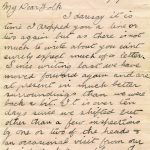 My Dear Folk
I daresay it is
time I dropped you a line or
two again but as there is not
much to write about you cant
surely expect much of a letter.
Since writing last we have
moved forward again and are
at present in much better
surroundings than we was
back a bit. It is over ten
days since we shifted but
other than a few inspection
by one or two of the heads &
an occasional visit from our